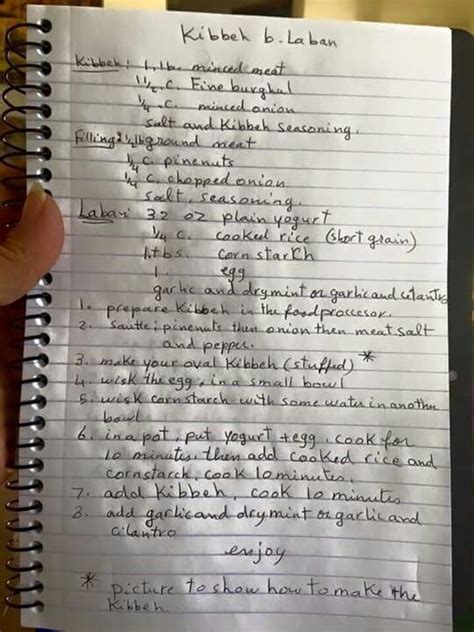 Kibbeh b. Laban
Kibbeh: 1, lb. minced meat
1 1/2. c. Fine burghul
1/4. c. minced onion
salt and Kibbeh seasoning.
Filling: 1/2 lb ground meat
1/4 c. pinenuts
1/4 c. chopped onion
salt, seasoning.
Laban: 32 oz plain yogurt
1/4 c. cooked rice (short grain)
1, tbs. corn starch
1. egg
garlic and dry mint or garlic and cilantro
1. prepare Kibbeh in the food proccesor.
2. sautte; pinenuts then onion then meat salt
and pepper.
3. make your oval Kibbeh (stuffed) *
4. wisk the egg, in a small bowl
5. wisk cornstarch with some water in another
bowl
6. in a pot, put yogurt + egg, cook for
10 minutes. then add cooked rice and
cornstarch, cook 10 minutes.
7. add Kibbeh, cook 10 minutes
8. add garlic and dry mint or garlic and
cilantro
enjoy
* picture to show how to make the
Kibbeh.